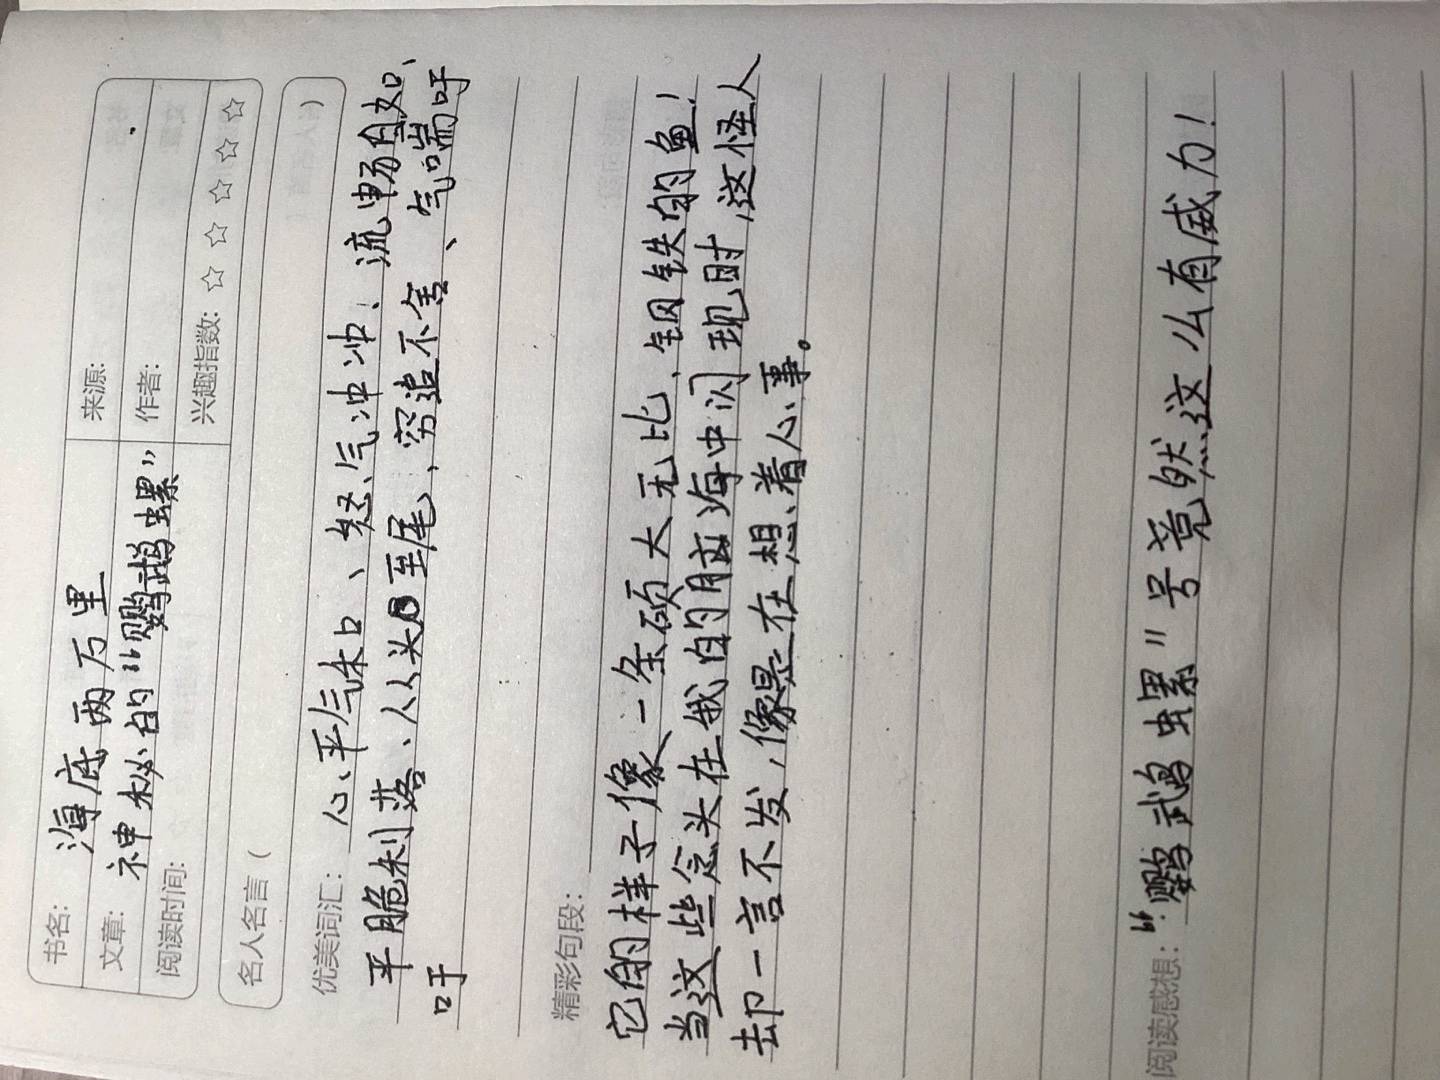 书名: 海底两万里 来源:
文章: 神秘的“鹦鹉螺” 作者:
阅读时间: 兴趣指数: ☆ ☆ ☆ ☆ ☆
名人名言 (
(名人名言)
优美词汇: 心平气和、怒气冲冲、流畅自如、
平脆利落、从头至尾、穷追不舍、气喘吁
吁
精彩句段:
它的样子像一条硕大无比、钢铁的鱼!
当这些念头在我的脑海中闪现时,这怪人
却一言不发,像是在想着心事。
阅读感想: “鹦鹉螺”号竟然这么有威力!